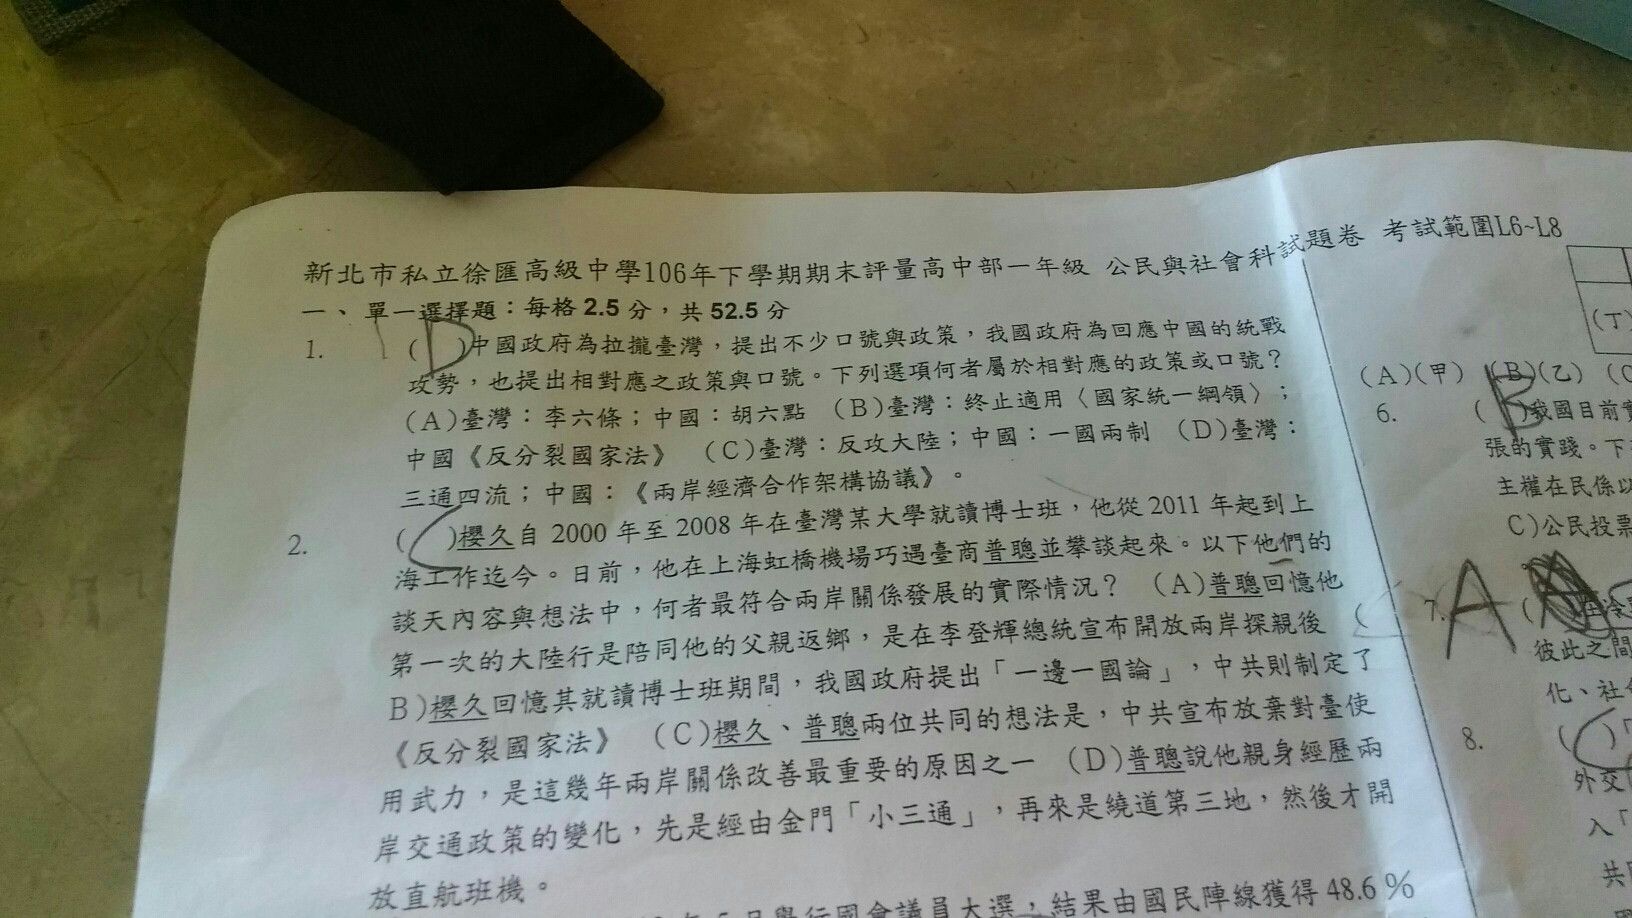 新北市私立徐匯高級中學106年下學期期末評量高中部一年級 公民與社會科試題卷 考試範圍L6~L8
一、單一選擇題：每格 2.5 分，共 52.5 分
1. (D)中國政府為拉攏臺灣，提出不少口號與政策，我國政府為回應中國的統戰
攻勢，也提出相對應之政策與口號。下列選項何者屬於相對應的政策或口號？
(A)臺灣：李六條；中國：胡六點 (B)臺灣：終止適用〈國家統一綱領〉；
中國《反分裂國家法》 (C)臺灣：反攻大陸；中國：一國兩制 (D)臺灣：
三通四流；中國：《兩岸經濟合作架構協議》。
2. (C)櫻久自 2000 年至 2008 年在臺灣某大學就讀博士班，他從 2011 年起到上
海工作迄今。日前，他在上海虹橋機場巧遇臺商普聰並攀談起來。以下他們的
談天內容與想法中，何者最符合兩岸關係發展的實際情況？ (A)普聰回憶他
第一次的大陸行是陪同他的父親返鄉，是在李登輝總統宣布開放兩岸探親後 (
B)櫻久回憶其就讀博士班期間，我國政府提出「一邊一國論」，中共則制定了
《反分裂國家法》 (C)櫻久、普聰兩位共同的想法是，中共宣布放棄對臺使
用武力，是這幾年兩岸關係改善最重要的原因之一 (D)普聰說他親身經歷兩
岸交通政策的變化，先是經由金門「小三通」，再來是繞道第三地，然後才開
放直航班機。
年 5 月舉行國會議員大選，結果由國民陣線獲得 48.6 %
(丁)
(A)(甲) (B)(乙) (C
6. (B)我國目前
張的實踐。下
主權在民係以
C)公民投票
7. A (
彼此之間
化、社會
8. (C)「
外交
入「
共同